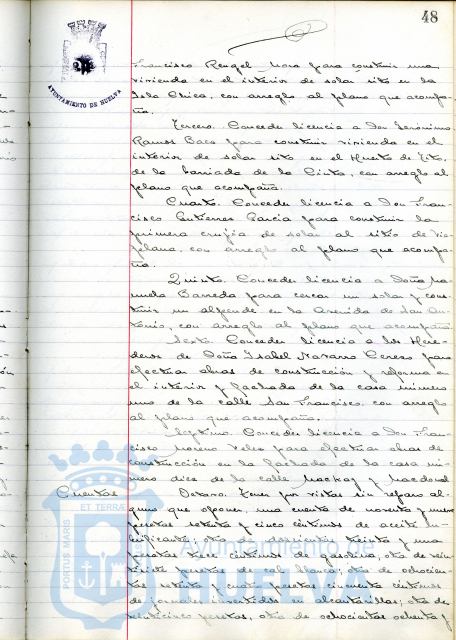 48
AYUNTAMIENTO DE HUELVA
Francisco Rengel Mora para construir una
vivienda en el interior de solar sito en la
Isla Chica, con arreglo al plano que acompa-
ña.
Tercero. Conceder licencia a Don Jerónimo
Ramos Baco para construir vivienda en el
interior de solar sito en el Huerto de Tito,
de la barriada de la Cinta, con arreglo al
plano que acompaña.
Cuarto. Conceder licencia a Don Fran-
cisco Gutierrez Garcia para construir la
primera crujia de solar al sitio de Via-
plana, con arreglo al plano que acompa-
ña.
Quinto. Conceder licencia a Doña Ma-
nuela Barreda para cercar un solar y cons-
truir un alpende en la Avenida de San An-
tonio, con arreglo al plano que acompaña.
Sexto. Conceder licencia a los Here-
deros de Doña Isabel Navarro Cerezo para
efectuar obras de construcción y reforma en
el interior y fachada de la casa número
uno de la calle San Francisco, con arreglo
al plano que acompaña.
Séptimo. Conceder licencia a Don Fran-
cisco Moreno Velez para efectuar obras de
construcción en la fachada de la casa nú-
mero diez de la calle Mackay y Macdonal
Cuentas
Octavo. Tener por vistas sin reparo al-
guno que oponer, una cuenta de noventa y nueve
pesetas setenta y cinco céntimos de aceite lu-
brificante; otra de seiscientas treinta y una
pesetas trece céntimos de gasolina; otra de vein-
tisiete pesetas de cal blanca; otra de ochocien-
tas setenta y cuatro pesetas cincuenta céntimos
de jornales invertidos en alcantarillas; otra de
veinticinco pesetas, otra de ochocientas ochenta y
PORTUS MARIS
ET TERRAE
Ayuntamiento de
HUELVA